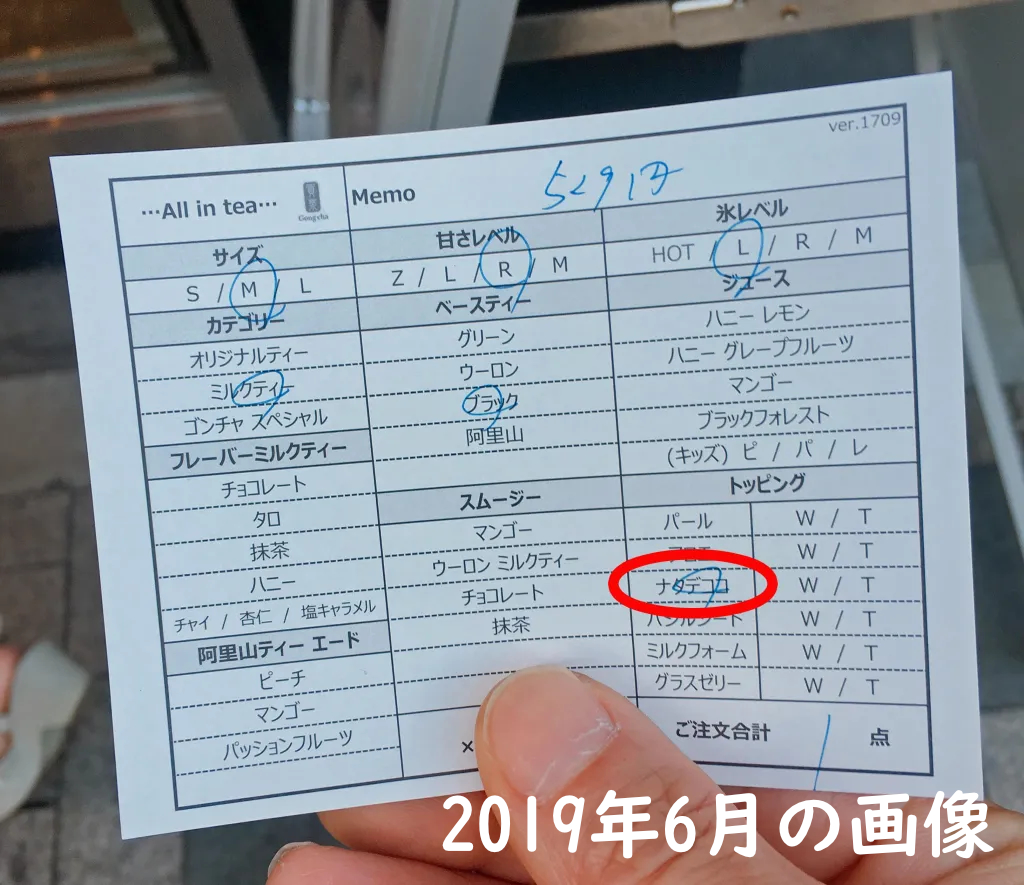 ver.1709
…All in tea…
Gongcha
Memo
529円
サイズ
S / M / L
甘さレベル
Z / L / R / M
氷レベル
HOT / L / R / M
カテゴリー
オリジナルティー
ミルクティー
ゴンチャ スペシャル
フレーバーミルクティー
チョコレート
タロ
抹茶
ハニー
チャイ / 杏仁 / 塩キャラメル
阿里山ティー エード
ピーチ
マンゴー
パッションフルーツ
ベースティー
グリーン
ウーロン
ブラック
阿里山
スムージー
マンゴー
ウーロン ミルクティー
チョコレート
抹茶
×
ジュース
ハニー レモン
ハニー グレープフルーツ
マンゴー
ブラックフォレスト
(キッズ) ピ / パ / レ
トッピング
パール W / T
W / T
ナタデココ W / T
バジルシード W / T
ミルクフォーム W / T
グラスゼリー W / T
ご注文合計 1 点
2019年6月の画像